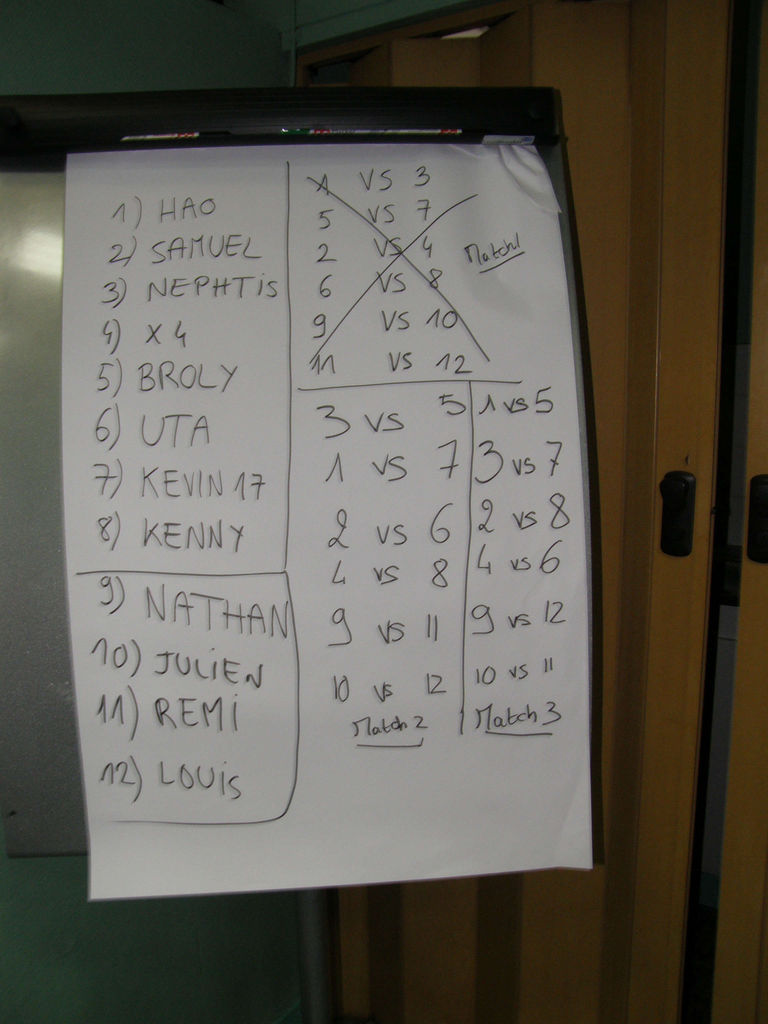 1) HAO
2) SAMUEL
3) NEPHTIS
4) X 4
5) BROLY
6) UTA
7) KEVIN 17
8) KENNY
9) NATHAN
10) JULIEN
11) REMI
12) LOUIS
1 VS 3
5 VS 7
2 VS 4
6 VS 8
9 VS 10
11 VS 12
Match 1
3 VS 5
1 VS 7
2 VS 6
4 VS 8
9 VS 11
10 VS 12
Match 2
1 VS 5
3 VS 7
2 VS 8
4 VS 6
9 VS 12
10 VS 11
Match 3